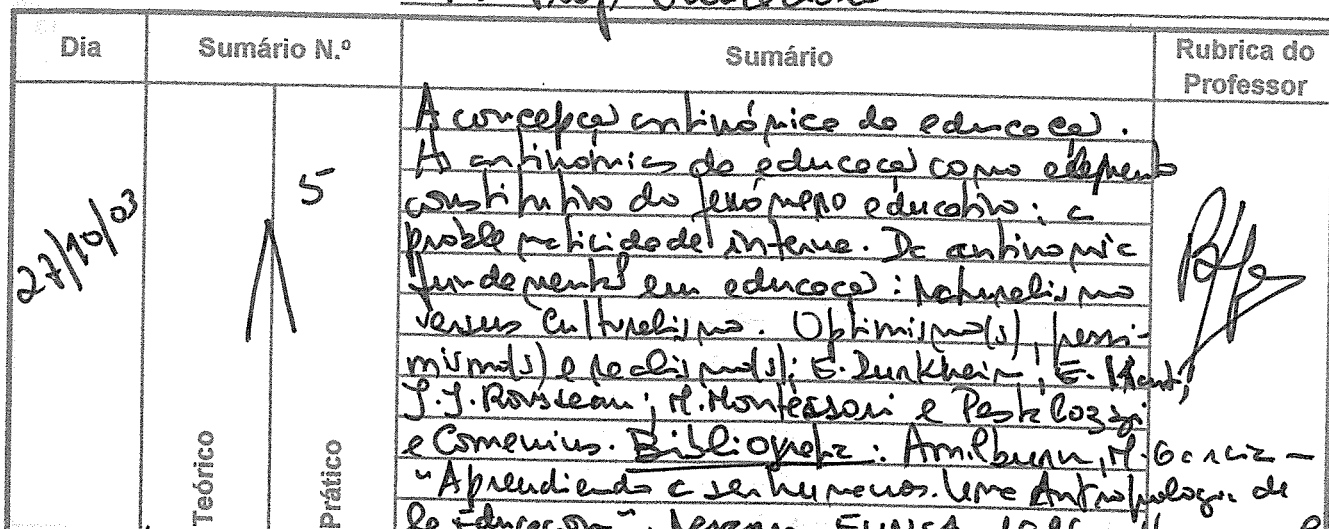 Dia
Sumário N.º
Sumário
Rubrica do
Professor
27/10/03
5
A concepção antinómica da educação.
As antinomias da educação como elemento
constitutivo do fenómeno educativo: a
problematicidade interna. Da antinomia
fundamental em educação: Naturalismo
versus Culturalismo. Optimismo(s), pessi-
mismo(s) e realismo(s): E. Durkheim; E. Kant;
J.J. Rousseau; M. Montessori e Pestalozzi
e Comenius. Bibliografia: Amilburu, M. Garcia –
"Aprendiendo a ser humanos. Una Antropologia de
la Educación". EUNSA
Teórico
Prático